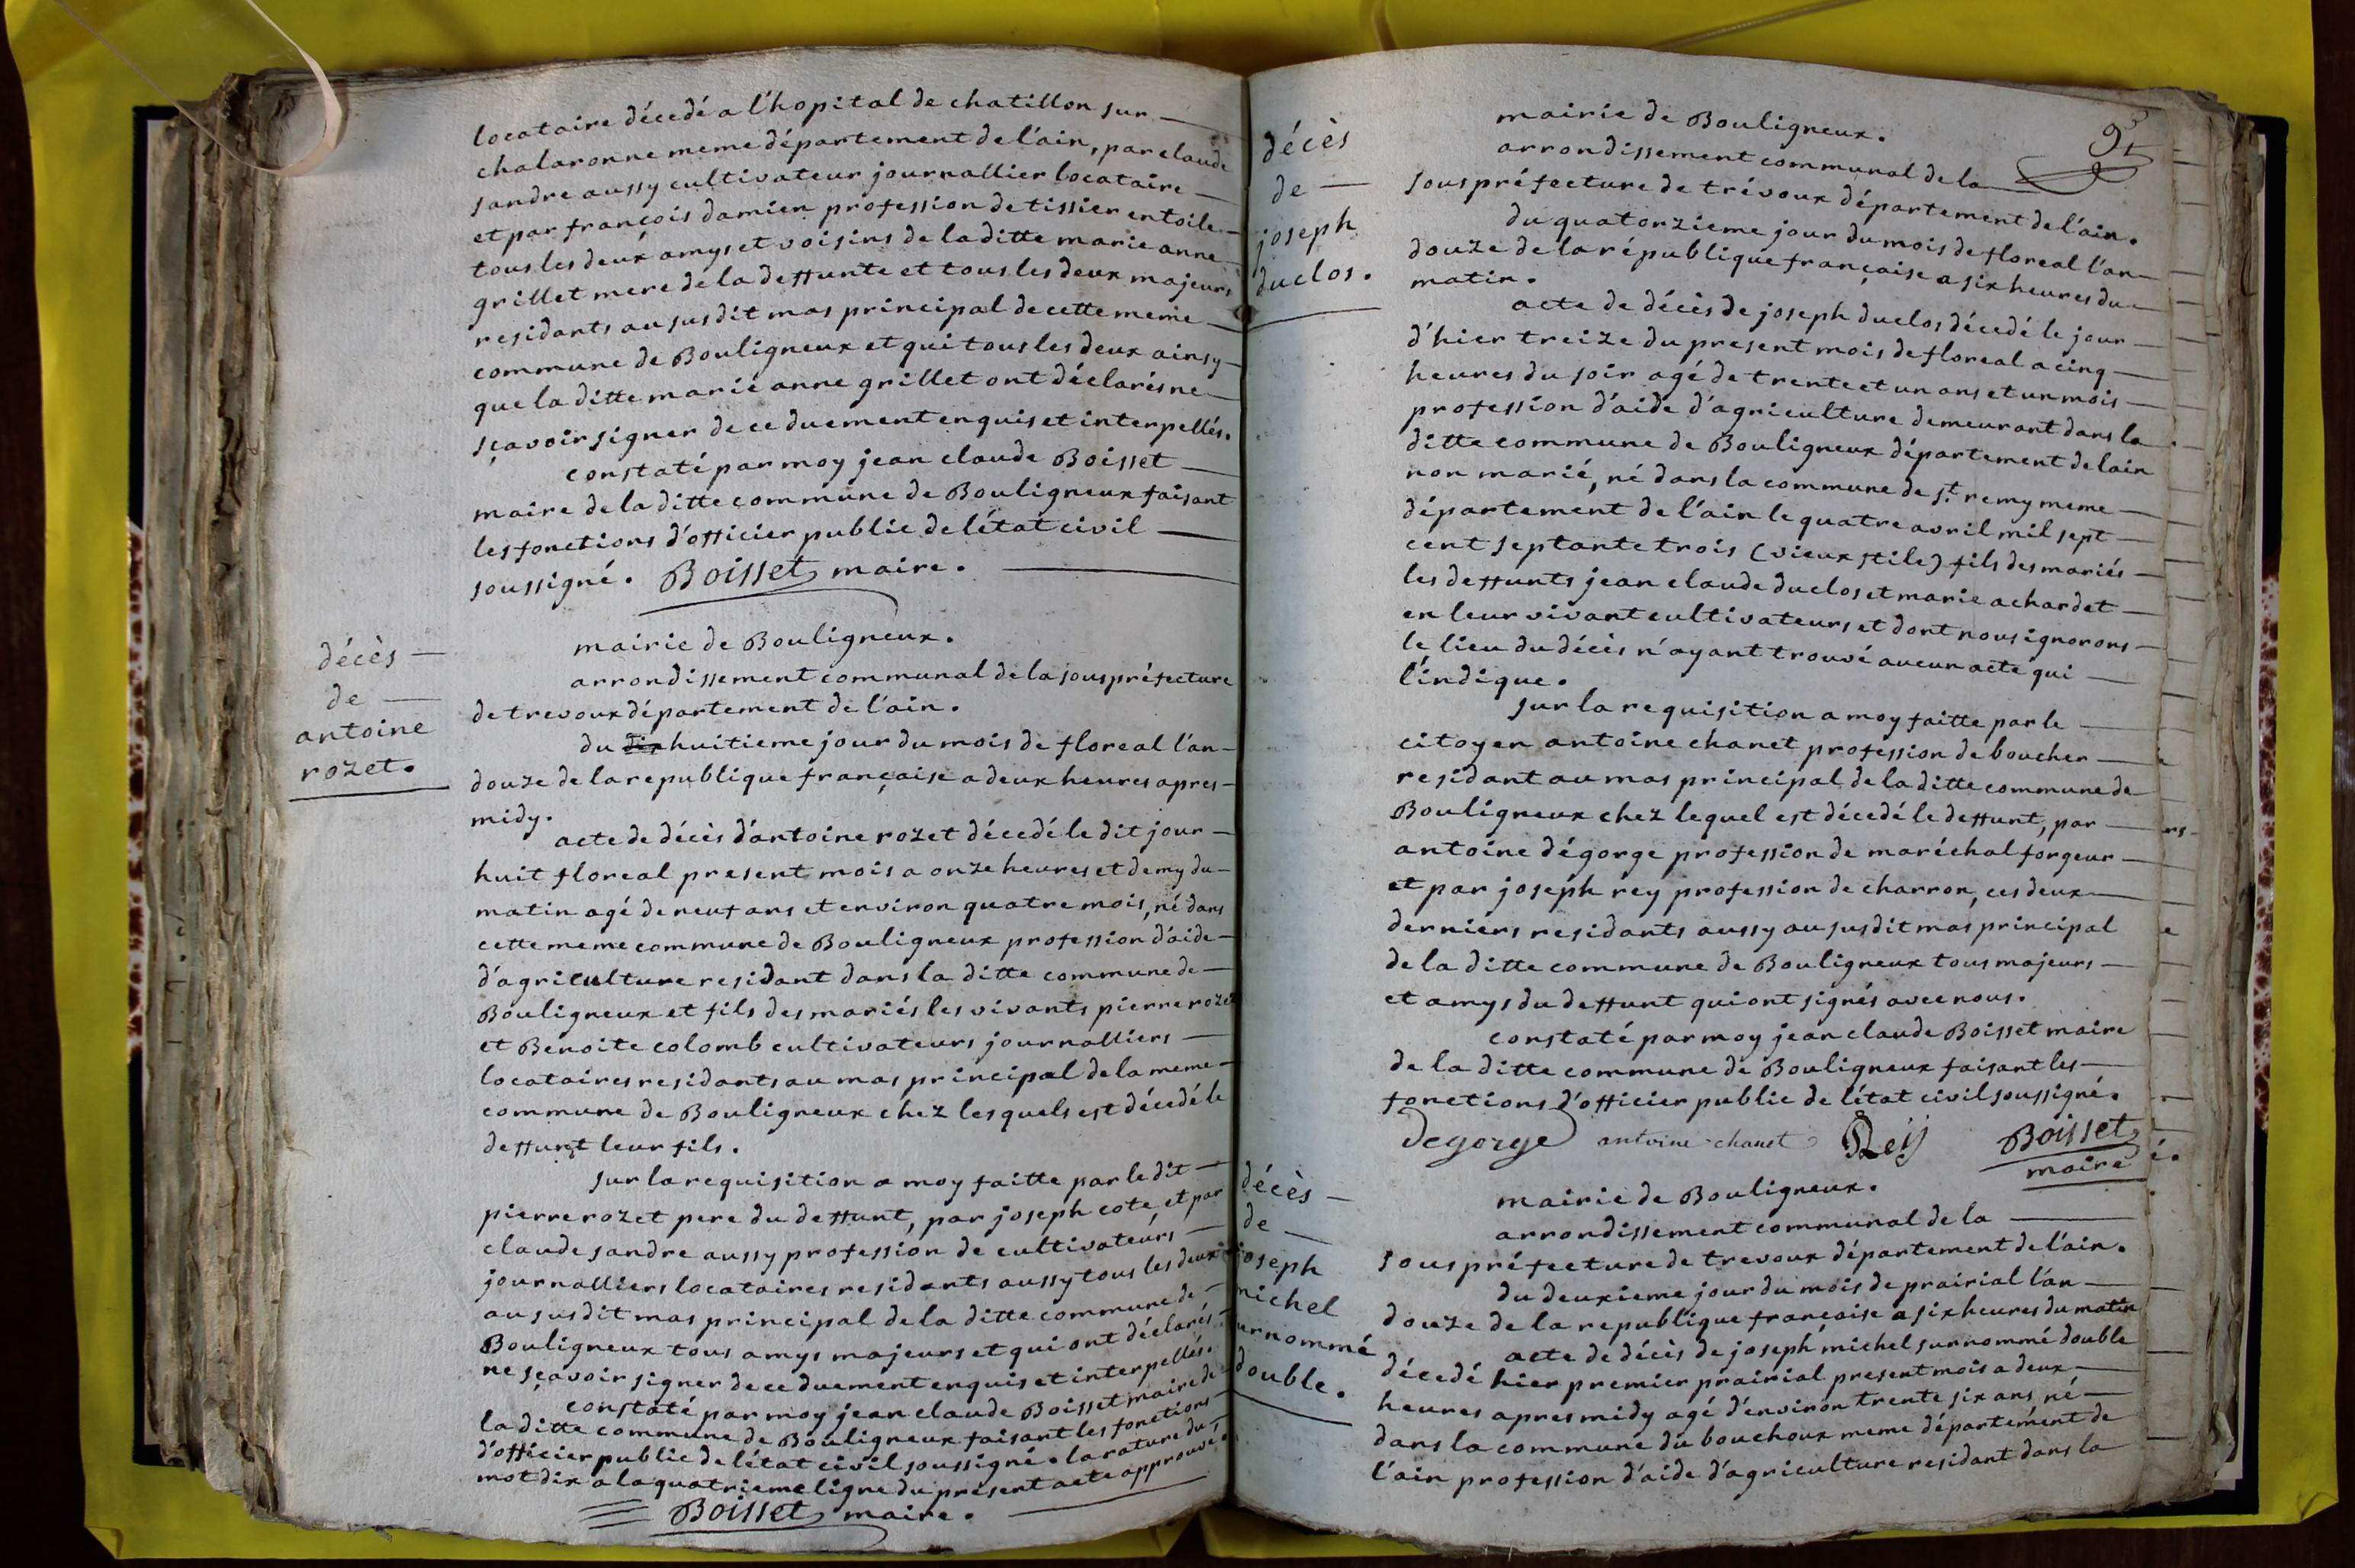 locataire décedé a l'hopital de chatillon sur
chalaronne meme département de l'ain, par claude
sandre aussy cultivateur journallier locataire
et par françois damien profession de tissier en toile
tous les deux amys et voisins de la ditte marie anne
grillet mere de la deffunte et tous les deux majeurs
residants au susdit mas principal de cette meme
commune de Bouligneux et qui tous les deux ainsy
que la ditte marie anne grillet ont déclarés ne
sçavoir signer de ce duement enquis et interpellés.
constaté par moy jean claude Boisset
maire de la ditte commune de Bouligneux faisant
les fonctions d'officier public de l'état civil
soussigné. Boisset maire.
décès
de
antoine
rozet.
mairie de Bouligneux.
arrondissement communal de la souspréfecture
de trevoux département de l'ain.
du dix huitieme jour du mois de floreal l'an
douze de la republique française a deux heures apres
midy.
acte de décès d'antoine rozet décedé le dit jour
huit floreal present mois a onze heures et demy du
matin agé de neuf ans et environ quatre mois, né dans
cette meme commune de Bouligneux profession d'aide
d'agriculture residant dans la ditte commune de
Bouligneux et fils des mariés les vivants pierre rozet
et Benoite colomb cultivateurs journalliers
locataires residants au mas principal de la meme
commune de Bouligneux chez lesquels est décedé le
deffunt leur fils.
sur la requisition a moy faitte par le dit
pierre rozet pere du deffunt, par joseph cote, et par
claude sandre aussy profession de cultivateurs
journalliers locataires residants aussy tous les deux
au susdit mas principal de la ditte commune de
Bouligneux tous amys majeurs et qui ont déclarés
ne sçavoir signer de ce duement enquis et interpellés.
constaté par moy jean claude Boisset maire de
la ditte commune de Bouligneux faisant les fonctions
d'officier public de l'état civil soussigné. la rature du
mot dix a la quatrieme ligne du present acte approuvé.
Boisset maire.
décès
de
joseph
duclos.
mairie de Bouligneux.
arrondissement communal de la
souspréfecture de trévoux département de l'ain.
du quatorzieme jour du mois de floreal l'an
douze de la république française a six heures du
matin.
acte de décès de joseph duclos décedé le jour
d'hier treize du present mois de floreal a cinq
heures du soir agé de trente et un ans et un mois
profession d'aide d'agriculture demeurant dans la
ditte commune de Bouligneux département de lain
non marié, né dans la commune de st. remy meme
département de l'ain le quatre avril mil sept
cent septante trois (vieux stile) fils des mariés
les deffunts jean claude duclos et marie achardet
en leur vivant cultivateurs et dont nous ignorons
le lieu du décès n'ayant trouvé aucun acte qui
l'indique.
sur la requisition a moy faitte par le
citoyen antoine chanet profession de boucher
residant au mas principal de la ditte commune de
Bouligneux chez lequel est décedé le deffunt, par
antoine dégorge profession de maréchal forgeur
et par joseph rey profession de charron, ces deux
derniers residants aussy au susdit mas principal
de la ditte commune de Bouligneux tous majeurs
et amys du deffunt qui ont signés avec nous.
constaté par moy jean claude Boisset maire
de la ditte commune de Bouligneux faisant les
fonctions d'officier public de l'état civil soussigné.
Degorge antoine chanet Rey Boisset
maire
décès
de
joseph
michel
surnommé
double.
mairie de Bouligneux.
arrondissement communal de la
souspréfecture de trevoux département de l'ain.
du deuxieme jour du mois de prairial l'an
douze de la republique française a six heures du matin
acte de décès de joseph michel surnommé double
décedé hier premier prairial present mois a deux
heures apres midy agé d'environ trente six ans, né
dans la commune du bouchoux meme département de
l'ain profession d'aide d'agriculture residant dans la